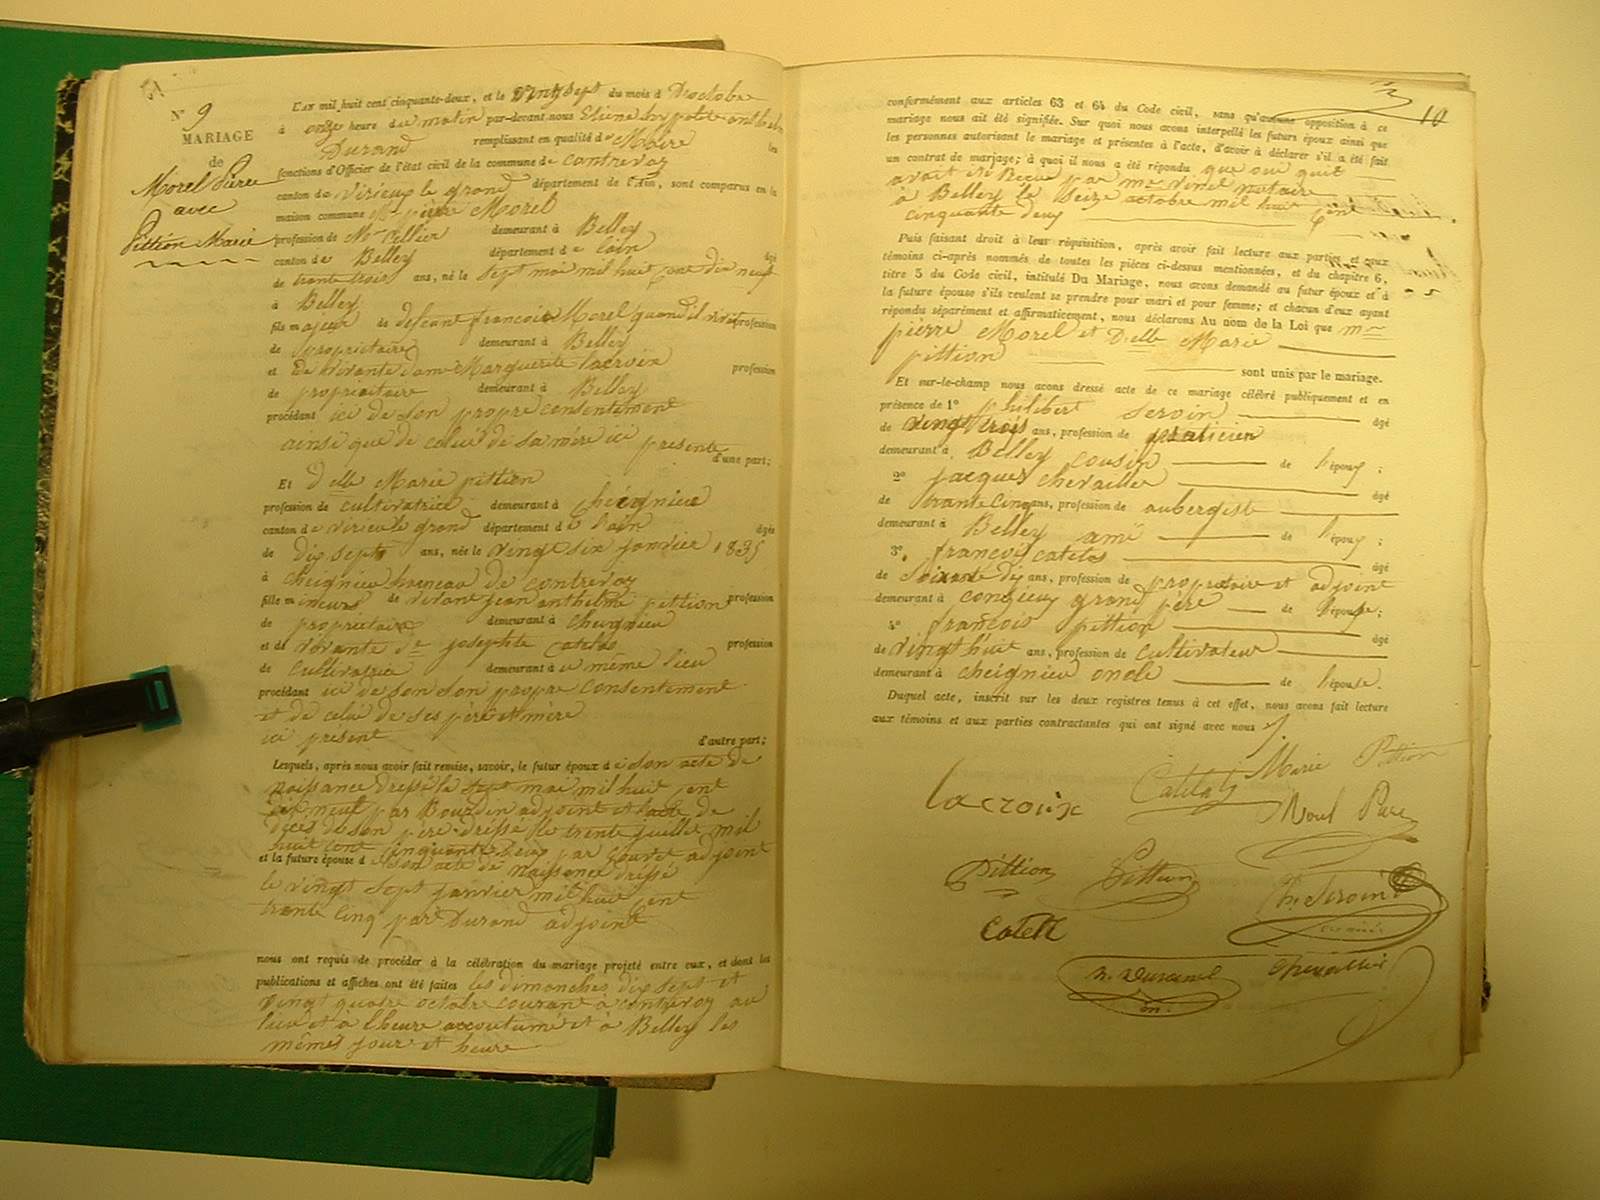 N° 9
MARIAGE
de
Morel Pierre
avec
Pittion Marie
L'AN mil huit cent cinquante-deux, et le vingt sept du mois d'octobre
à onze heure du matin par-devant nous Etiene hypolite anthelme
Durand remplissant en qualité de Maire les
fonctions d'Officier de l'état civil de la commune de contrevoz
canton de Virieux le grand département de l'Ain, sont comparus en la
maison commune Mr pierre Morel
profession de Mr Cellier demeurant à Belley
canton de Belley département de l'ain âgé
de trente trois ans, né le sept mai mil huit cent dix neuf
à Belley
fils majeur de defeunt francois Morel quand il vivait profession
de propriétaire demeurant à Belley
et de vivante dame Marguerite lacroix profession
de propriaitaire demeurant à Belley
procédant ici de son propre consentement
ainsi que de celui de sa mère ici presente
d'une part;
Et Delle Marie pittion
profession de cultivatrice demeurant à cheignieu
canton de virieu le grand département de l'ain âgée
de dix sept ans, née le vingt six janvier 1835
à cheignieu hameau de contrevoz
fille mineure de vivant jean anthelme pittion profession
de proprietaire demeurant à cheignieu
et de vivante de josephte catelas profession
de cultivatrice demeurant au même lieu
procédant ici de son son propre consentement
et de celui de ses père et mère
ici present
d'autre part;
Lesquels, après nous avoir fait remise, savoir, le futur époux de son acte de
naissance dressé le sept mai mil huit cent
dix neuf par Bourdin adjoint et l'acte de
décès de son père dréssé le trente juillet mil
huit cent cinquante par adjoint
et la future épouse de son acte de naissance dressé
le vingt sept janvier mil huit cent
trente cinq par Durand adjoint
nous ont requis de procéder à la célébration du mariage projeté entre eux, et dont les
publications et affiches ont été faites les dimanches dix sept et
vingt quatre octobre courant à contrevoz au
lieu et à l'heure accoutumé et à Belley les
mêmes jour et heure
10
conformément aux articles 63 et 64 du Code civil, sans qu'aucune opposition à ce
mariage nous ait été signifiée. Sur quoi nous avons interpellé les futurs époux ainsi que
les personnes autorisant le mariage et présentes à l'acte, d'avoir à déclarer s'il a été fait
un contrat de mariage; à quoi il nous a été répondu que oui qu'il
avait été Reçu par me vinet notaire
à Belley le Seize octobre mil huit cent
cinquante deux
Puis faisant droit à leur réquisition, après avoir fait lecture aux parties et aux
témoins ci-après nommés de toutes les pièces ci-dessus mentionnées, et du chapitre 6,
titre 5 du Code civil, intitulé Du Mariage, nous avons demandé au futur époux et à
la future épouse s'ils veulent se prendre pour mari et pour femme; et chacun d'eux ayant
répondu séparément et affirmaticement, nous déclarons Au nom de la Loi que mr
pierre Morel et Delle Marie
pittion
sont unis par le mariage.
Et sur-le-champ nous avons dressé acte de ce mariage célébré publiquement et en
présence de 1° philibert Seroin âgé
de vingt trois ans, profession de praticien
demeurant à Belley cousin de l'époux;
2° jacques chevallier âgé
de trante cinq ans, profession de aubergiste
demeurant à Belley ami de l'époux;
3° françois catelas âgé
de Soixante dix ans, profession de propriétaire et adjoint
demeurant à conzieux grand père de l'épouse;
4° francois pittion âgé
de vingt huit ans, profession de cultivateur
demeurant à cheignieu oncle de l'épouse.
Duquel acte, inscrit sur les deux registres tenus à cet effet, nous avons fait lecture
aux témoins et aux parties contractantes qui ont signé avec nous
Marie Pittion
lacroix Morel
Pittion Pittion Ph. Seroin
Durand
m. Chevallier